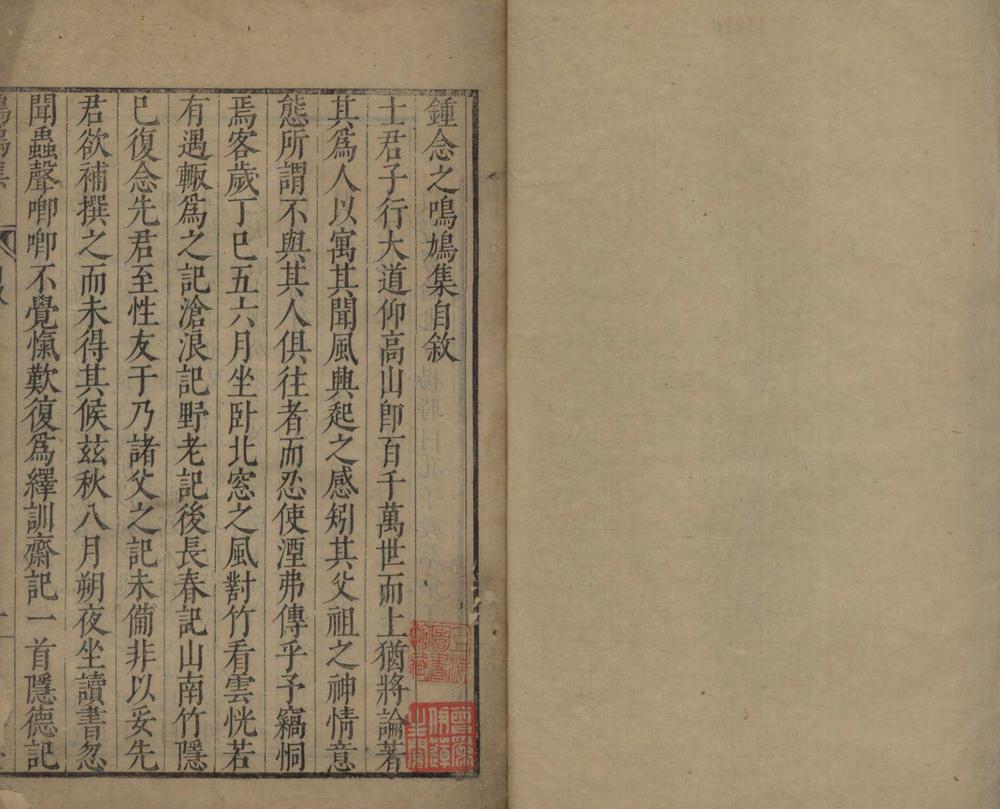 鍾念之鳴鳩集自敘
士君子行大道仰高山卽百千萬世而上猶將論著
其爲人以寓其聞風興起之感矧其父祖之神情意
態所謂不與其人俱往者而忍使湮弗傳乎予竊恫
焉客歲丁巳五六月坐卧北窓之風對竹看雲恍若
有遇輙爲之記滄浪記野老記後長春記山南竹隱
已復念先君至性友于乃諸父之記未俻非以妥先
君欲補撰之而未得其候茲秋八月朔夜坐讀書忽
聞蟲聲唧唧不覺愾歎復爲繹訓齋記一首隱德記
鳴鳩集